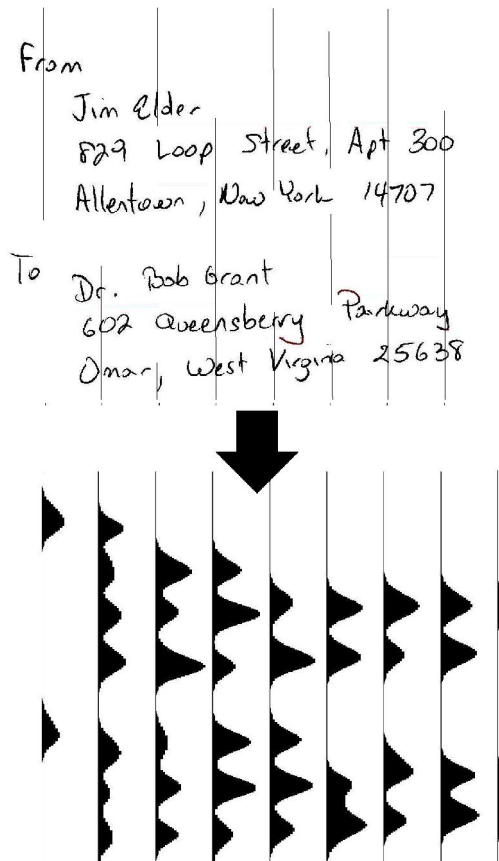 From
Jim Elder
829 Loop Street, Apt 300
Allentown, New York 14707
To
Dr. Bob Grant
602 Queensberry Parkway
Omar, West Virginia 25638